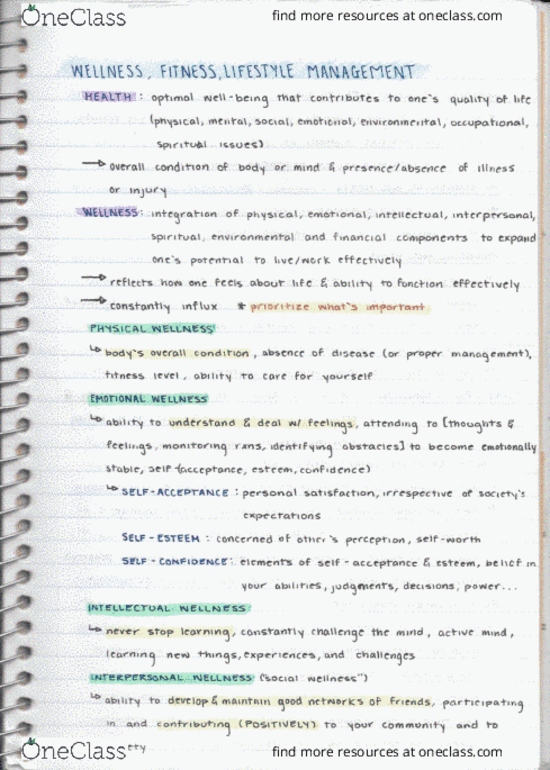 OneClass
find more resources at oneclass.com
WELLNESS, FITNESS, LIFESTYLE MANAGEMENT
HEALTH : optimal well-being that contributes to one's quality of life
(physical, mental, social, emotional, environmental, occupational,
spiritual issues)
→ overall condition of body or mind & presence/absence of illness
or injury
WELLNESS: integration of physical, emotional, intellectual, interpersonal,
spiritual, environmental and financial components to expand
one's potential to live/work effectively
→ reflects how one feels about life & ability to function effectively
→ constantly influx * prioritize what's important
PHYSICAL WELLNESS
↳ body's overall condition, absence of disease (or proper management),
fitness level, ability to care for yourself
EMOTIONAL WELLNESS
↳ ability to understand & deal w/ feelings, attending to [thoughts &
feelings, monitoring rxns, identifying obstacles] to become emotionally
stable, self-(acceptance, esteem, confidence)
↳ SELF-ACCEPTANCE : personal satisfaction, irrespective of society's
expectations
SELF-ESTEEM : concerned of other's perception, self-worth
SELF-CONFIDENCE: elements of self-acceptance & esteem, belief in
your abilities, judgments, decisions, power...
INTELLECTUAL WELLNESS
↳ never stop learning, constantly challenge the mind, active mind,
learning new things, experiences, and challenges
INTERPERSONAL WELLNESS ("social wellness")
↳ ability to develop & maintain good networks of friends, participating
in and contributing (POSITIVELY) to your community and to
ety
OneClass
find more resources at oneclass.com